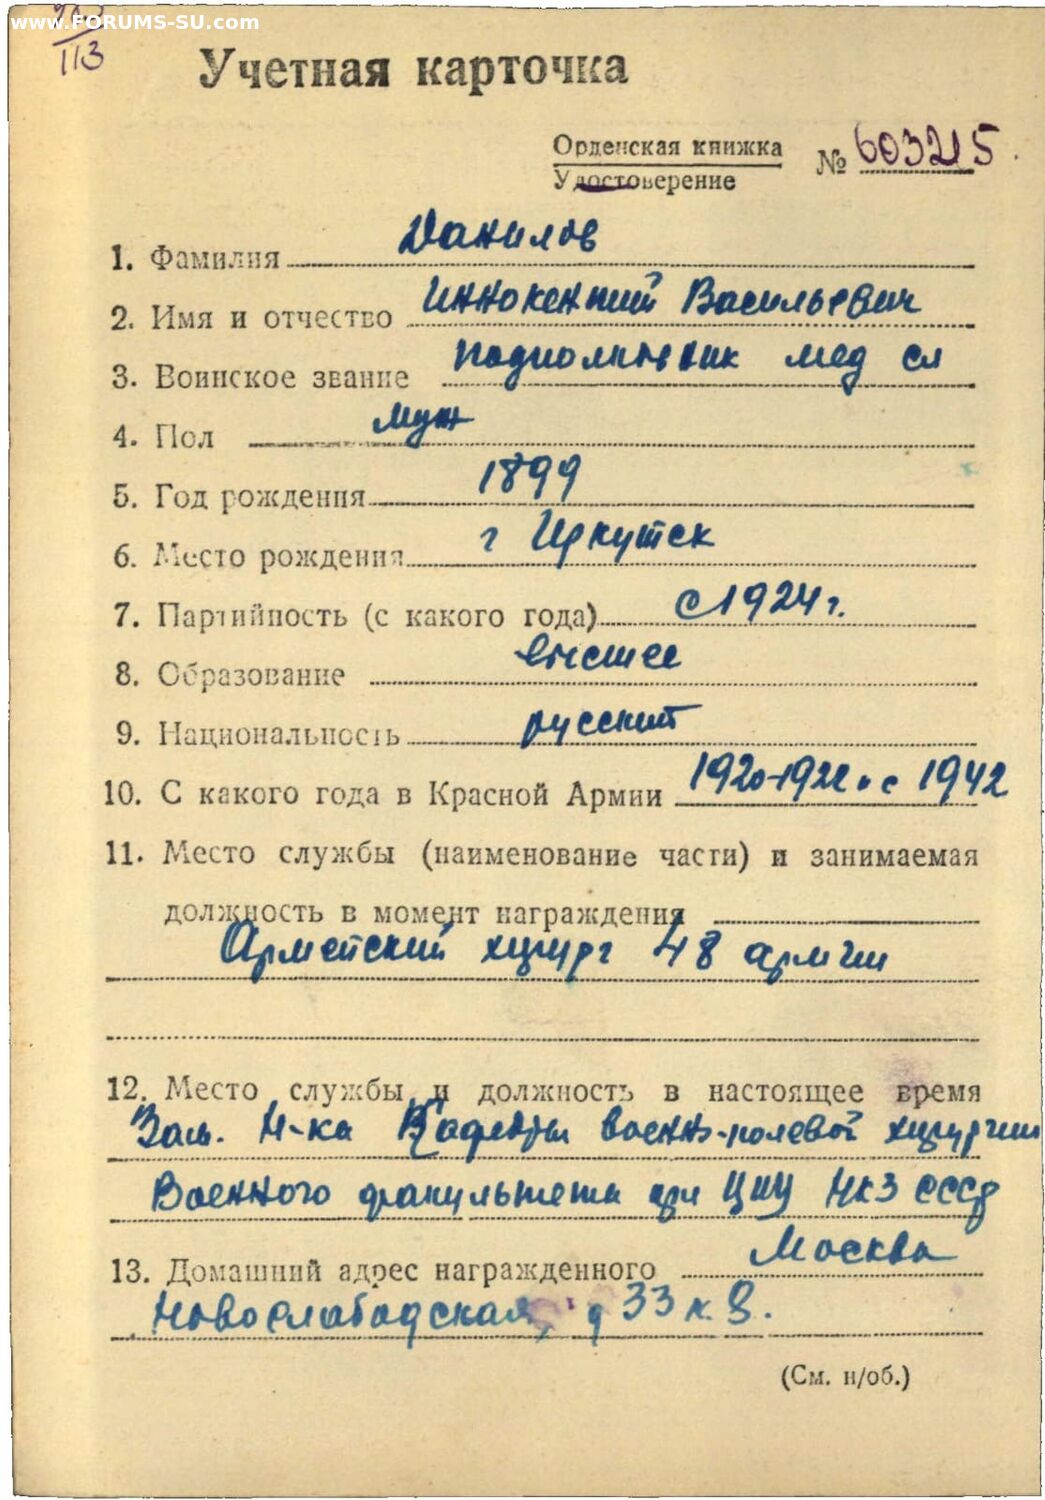 www.FORUMS-SU.com
113
Учетная карточка
Орденская книжка
Удостоверение
№ 603215.
1. Фамилия Данилов
2. Имя и отчество Иннокентий Васильевич
3. Воинское звание подполковник мед сл
4. Пол муж
5. Год рождения 1899
6. Место рождения г Иркутск
7. Партийность (с какого года) с 1924 г.
8. Образование высшее
9. Национальность русский
10. С какого года в Красной Армии 1920-1922 и с 1942
11. Место службы (наименование части) и занимаемая
должность в момент награждения
Армейский хирург 48 армии
12. Место службы и должность в настоящее время
Зам. Н-ка Кафедры военно-полевой хирургии
Военного факультета при ЦИУ НКЗ СССР
13. Домашний адрес награжденного Москва
Новослабодская, д 33 к. 8.
(См. н/об.)